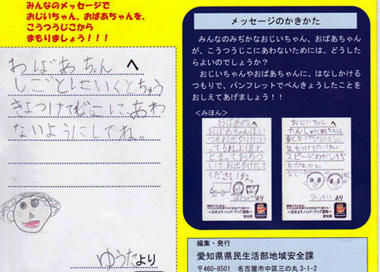 みんなのメッセージで
おじいちゃん、おばあちゃんを、
こうつうじこから
まもりましょう!!!
おばあちゃんへ
しごとにいくとちゅう
きよつけてじこにあわ
ないようにしてね。
ゆうたより
メッセージのかきかた
みんなのみぢかなおじいちゃん、おばあちゃん
が、こうつうじこにあわないためには、どうした
らよいのでしょうか?
おじいちゃんやおばあちゃんに、はなしかける
つもりで、パンフレットでべんきょうしたことを
おしえてあげましょう!!
<みほん>
おばあちゃんへ
おじいちゃんへ
より
より
編集・発行
愛知県県民生活部地域安全課
〒460-8501 名古屋市中区三の丸3-1-